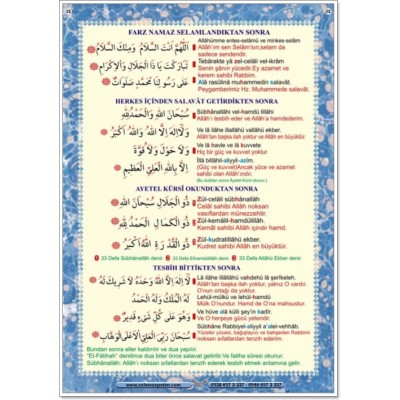 FARZ NAMAZ SELAMLANDIKTAN SONRA
اَللّٰهُمَّ اَنْتَ السَّلَامُ وَمِنْكَ السَّلَامُ
Allâhümme entes-selâmü ve minkes-selâm
Allâh'ım sen Selâm'sın; selam da
sadece sendendir.
تَبَارَكْتَ يَا ذَا الْجَلَالِ وَالْاِكْرَامِ
Tebârakte yâ zel-celâli vel-ikrâm
Senin şânın yücedir Ey azamet ve
kerem sahibi Rabbim.
عَلٰى رَسُولِنَا مُحَمَّدٍ صَلَوَاتٌ
Alâ rasûlinâ muhammedin salavât.
Peygamberimiz Hz. Muhammede salavât.
HERKES İÇİNDEN SALAVÂT GETİRDİKTEN SONRA
سُبْحَانَ اللّٰهِ وَالْحَمْدُ لِلّٰهِ
Sübhânallâhi vel-hamdü lillâhi
Allâh'ı tesbih eder ve Allâh'a hamdederim.
وَلَا اِلٰهَ اِلَّا اللّٰهُ وَاللّٰهُ اَكْبَرُ
Ve lâ ilâhe illallâhü vallâhü ekber.
Allah'tan başka ilah yoktur ve Allâh en büyüktür.
وَلَا حَوْلَ وَلَا قُوَّةَ
Ve lâ havle ve lâ kuvvete
Hiç bir güç ve kuvvet yoktur
اِلَّا بِاللّٰهِ الْعَلِيِّ الْعَظِيمِ
İllâ billâhil-aliyyil-azîm.
(Güç ve kuvvet)Ancak yüce ve azamet
sahibi olan Allâh'ındır.
AYETEL KÜRSÎ OKUNDUKTAN SONRA
ذُو الْجَلَالِ سُبْحَانَ اللّٰهِ
Zül-celâli sübhânallâh
Celâl sahibi Allâh noksan
vasıflardan münezzehtir.
ذُو الْكَمَالِ الْحَمْدُ لِلّٰهِ
Zül-kemâlil-hamdülillâh.
Kemâl sahibi Allâh içindir hamd.
ذُو الْقُدْرَةِ اللّٰهُ اَكْبَرُ
Zül-kudratillâhü ekber.
Kudret sahibi Allâh en büyüktür.
33 Defa Sübhânallâh denir. 33 Defa Elhamdülillâh denir. 33 Defa Allâhü Ekber denir.
TESBİH BİTTİKTEN SONRA
لَا اِلٰهَ اِلَّا اللّٰهُ وَحْدَهُ لَا شَرِيكَ لَهُ
Lâ ilâhe illallâhü vahdehû lâ şerîkeleh.
Allah'tan başka ilah yoktur, yalnız O vardır.
O'nun ortağı da yoktur.
لَهُ الْمُلْكُ وَلَهُ الْحَمْدُ
Lehül-mülkü ve lehül-hamdü
Mülk O'nundur. Hamd de O'na mahsustur.
وَهُوَ عَلٰى كُلِّ شَيْءٍ قَدِيرٌ
Ve hüve alâ külli şey'in kadîr.
Ve O herşeye gücü yetendir.
سُبْحَانَ رَبِّيَ الْعَلِيِّ الْاَعْلَى الْوَهَّابِ
Sübhâne Rabbiyel-aliyyil a'alel-vehhâb.
Bundan sonra eller kaldırılır ve dua yapılır.
"El-Fâtihah" denilince dua biter önce salavat getirilir. Ve fatiha sûresi okunur.